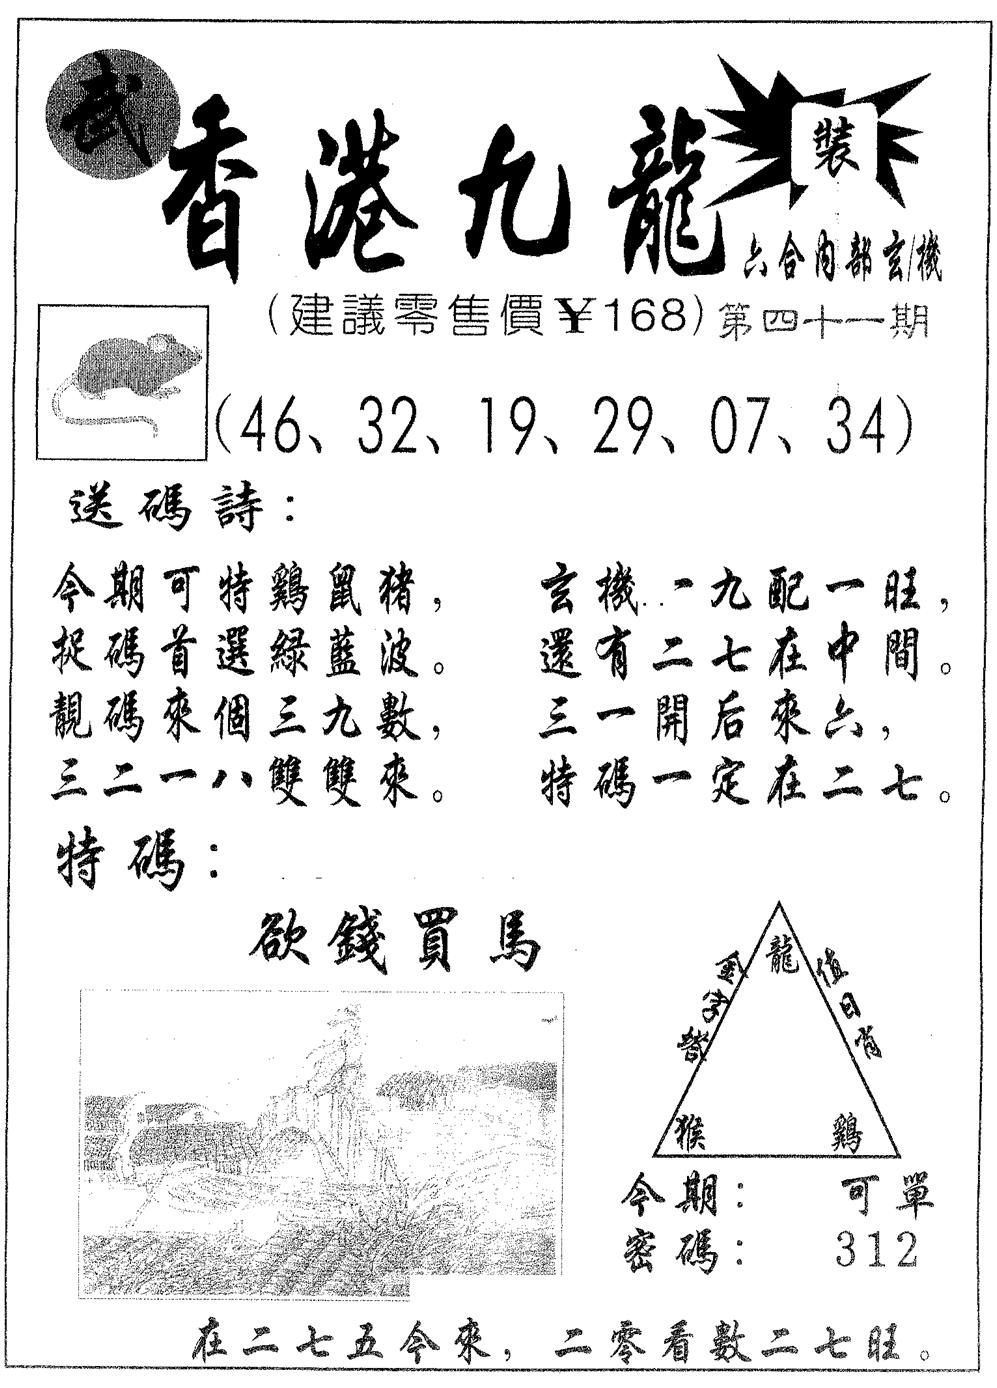 武
香港九龍
裝
六合内部玄機
(建議零售價¥168)第四十一期
(46、32、19、29、07、34)
送碼詩：
今期可特鷄鼠猪，
捉碼首選綠藍波。
靚碼來個三九數，
三二一八雙雙來。
玄機..一九配一旺，
還有二七在中間。
三一開后來六，
特碼一定在二七。
特碼：
欲錢買馬
金字塔
龍
值日肖
猴
鷄
今期： 可單
密碼： 312
在二七五今來，二零看數二七旺。